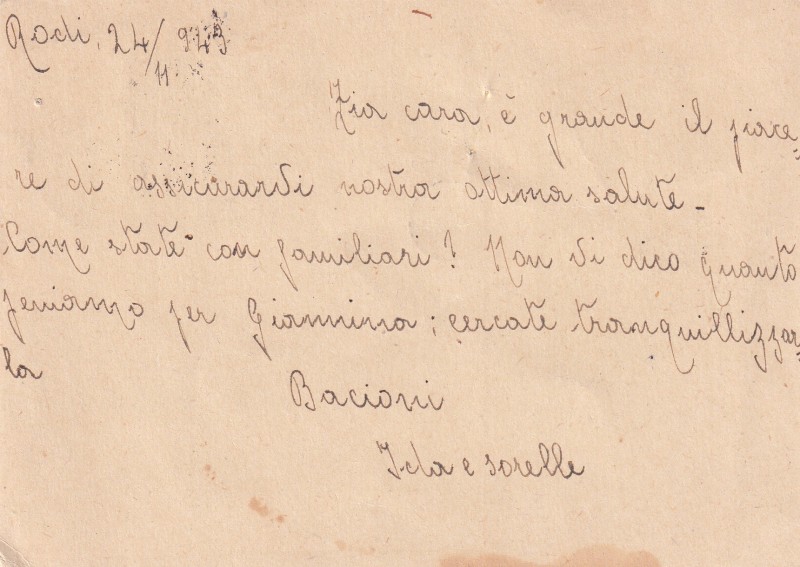 Rodi, 24/11 943
Zia cara, è grande il piace=
re di assicurarvi nostra ottima salute -
Come state con familiari? Non vi dico quanto
peniamo per Giannina; cercate tranquillizzar=
la
Bacioni
Ida e sorelle